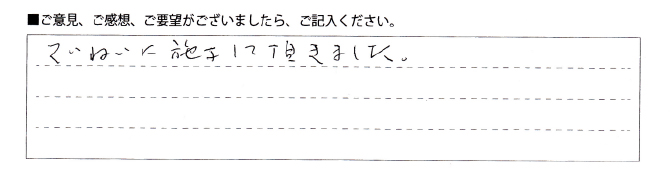 ■ご意見、ご感想、ご要望がございましたら、ご記入ください。
ていねいに施工して頂きました。